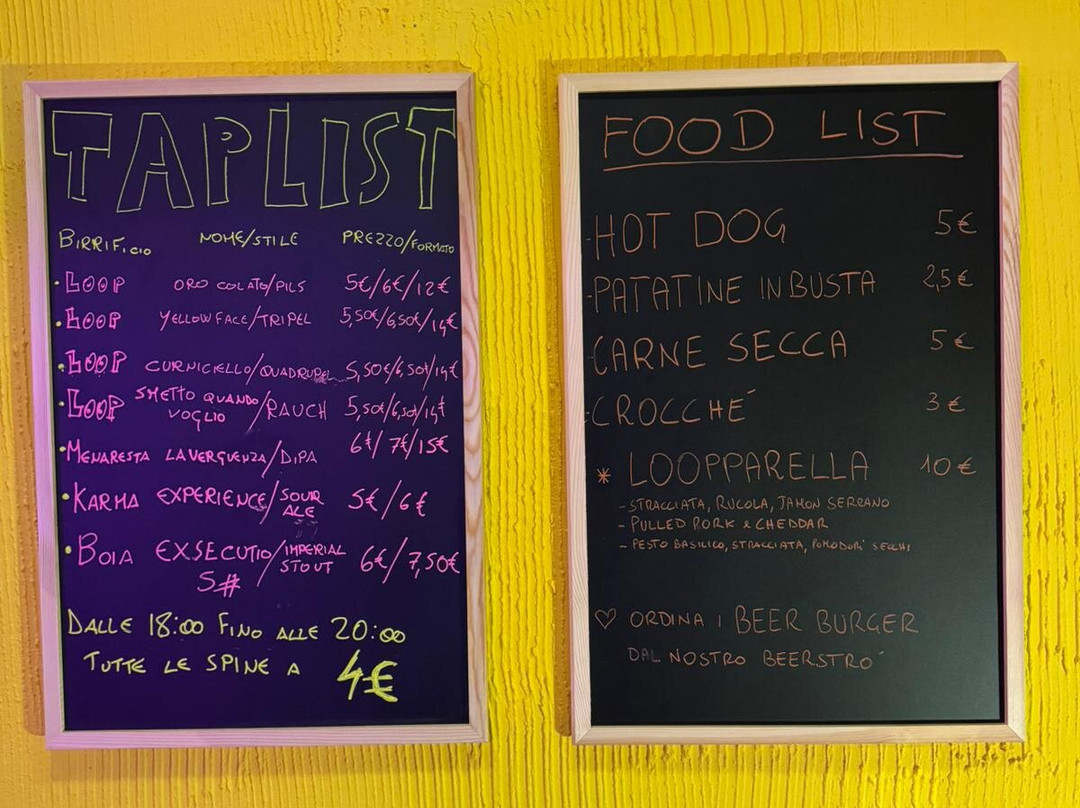 TAPLIST
BIRRIFICIO NOME/STILE PREZZO/FORMATO
LOOP ORO COLATO/PILS 5€/6€/12€
LOOP YELLOW FACE/TRIPEL 5,50€/6,50€/14€
LOOP CURNICIELLO/QUADRUPEL 5,50€/6,50€/14€
LOOP SMETTO QUANDO VOGLIO/RAUCH 5,50€/6,50€/14€
MENARESTA LA VERGUENZA/DIPA 6€/7€/15€
KARMA EXPERIENCE/SOUR ALE 5€/6€
BOIA EXSECUTIO/IMPERIAL STOUT 6€/7,50€
5#
DALLE 18:00 FINO ALLE 20:00
TUTTE LE SPINE A 4€
FOOD LIST
-HOT DOG 5€
-PATATINE IN BUSTA 2,5€
-CARNE SECCA 5€
-CROCCHE' 3€
* LOOPPARELLA 10€
- STRACCIATA, RUCOLA, JAMON SERRANO
- PULLED PORK & CHEDDAR
- PESTO BASILICO, STRACCIATA, POMODORI SECCHI
♡ ORDINA I BEER BURGER
DAL NOSTRO BEERSTRO'